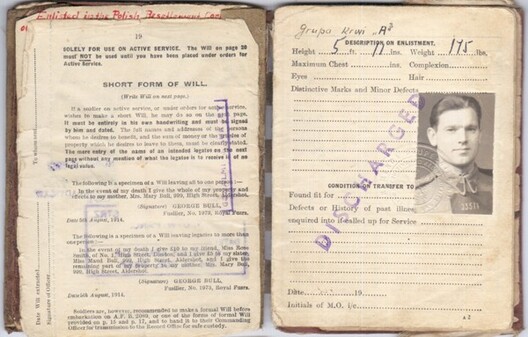 Enlisted in the Polish Resettlement Corps
19
SOLELY FOR USE ON ACTIVE SERVICE. The Will on page 20
must NOT be used until you have been placed under orders for
Active Service.
SHORT FORM OF WILL.
(Write Will on next page.)
If a soldier on active service, or under orders for active service,
wishes to make a short Will, he may do so on the next page.
It must be entirely in his own handwriting and must be signed
by him and dated. The full names and addresses of the persons
whom he desires to benefit, and the sum of money or the articles of
property which he desires to leave to them, must be clearly stated.
The mere entry of the name of an intended legatee on the next
page without any mention of what the legatee is to receive is of no
legal value.
The following is a specimen of a Will leaving all to one person:—
In the event of my death I give the whole of my property and
effects to my mother, Mrs. Mary Bull, 999, High Street, Aldershot.
(Signature) GEORGE BULL,
Fusilier, No. 1973, Royal Fusrs.
Date 5th August, 1914.
The following is a specimen of a Will leaving legacies to more than
one person:—
In the event of my death I give £10 to my friend, Miss Rose
Smith, of No. 1, High Street, London, and I give £5 to my sister,
Miss Maud Bull, 999, High Street, Aldershot, and I give the
remaining part of my property to my mother, Mrs. Mary Bull,
999, High Street, Aldershot.
(Signature) GEORGE BULL,
Fusilier, No. 1973, Royal Fusrs.
Date 5th August, 1914.
Soldiers are, however, recommended to make a formal Will before
embarkation on A.F. B. 2089, or one of the forms of formal Will
provided on p. 15 and p. 17, and to hand it to their Commanding
Officer for transmission to the Record Office for safe custody.
Date Will extracted
To whom sent
Signature of Officer
Grupa krwi „A"
DESCRIPTION ON ENLISTMENT.
Height 5 ft. 11 ins. Weight 175 lbs.
Maximum Chest ins. Complexion
Eyes Hair
Distinctive Marks and Minor Defects
CONDITION ON TRANSFER TO
Found fit for
Defects or History of past illness
enquired into if called up for Service
Date 19
Initials of M.O. i/c
DISCHARGED
A 2